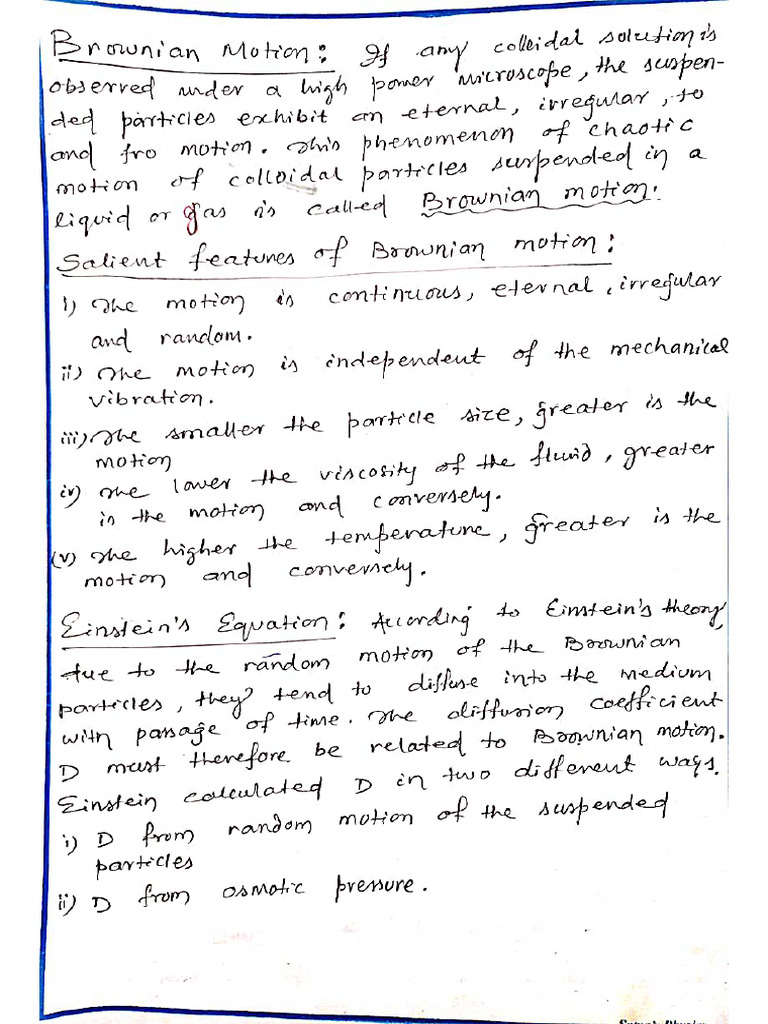 Brownian Motion: If any colloidal solution is
observed under a high power microscope, the suspen-
ded particles exhibit an eternal, irregular, to
and fro motion. This phenomenon of chaotic
motion of colloidal particles suspended in a
liquid or gas is called Brownian motion.
Salient features of Brownian motion:
i) The motion is continuous, eternal, irregular
and random.
ii) The motion is independent of the mechanical
vibration.
iii) The smaller the particle size, greater is the
motion
iv) The lower the viscosity of the fluid, greater
is the motion and conversely.
(v) The higher the temperature, greater is the
motion and conversely.
Einstein's Equation: According to Einstein's theory,
due to the random motion of the Brownian
particles, they tend to diffuse into the medium
with passage of time. The diffusion coefficient
D must therefore be related to Brownian motion.
Einstein calculated D in two different ways.
i) D from random motion of the suspended
particles
ii) D from osmotic pressure.